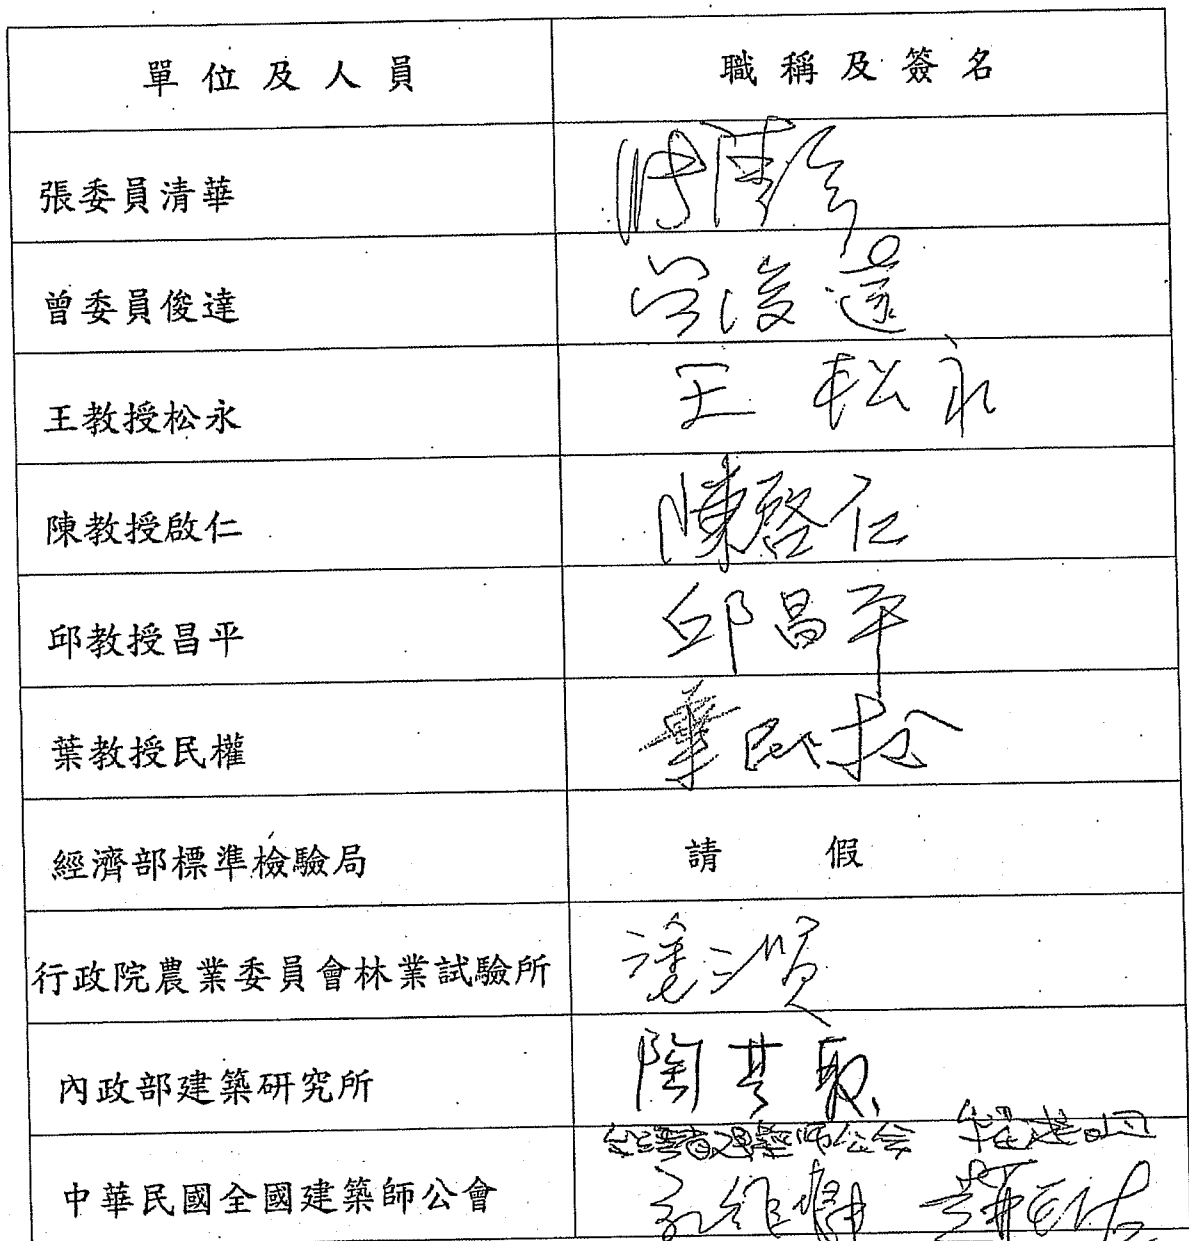 單位及人員 職稱及簽名
張委員清華 張清華
曾委員俊達 曾俊達
王教授松永 王松永
陳教授啟仁 陳啓仁
邱教授昌平 邱昌平
葉教授民權 葉民权
經濟部標準檢驗局 請假
行政院農業委員會林業試驗所
內政部建築研究所 陶其駿
台灣省建築師公會
中華民國全國建築師公會